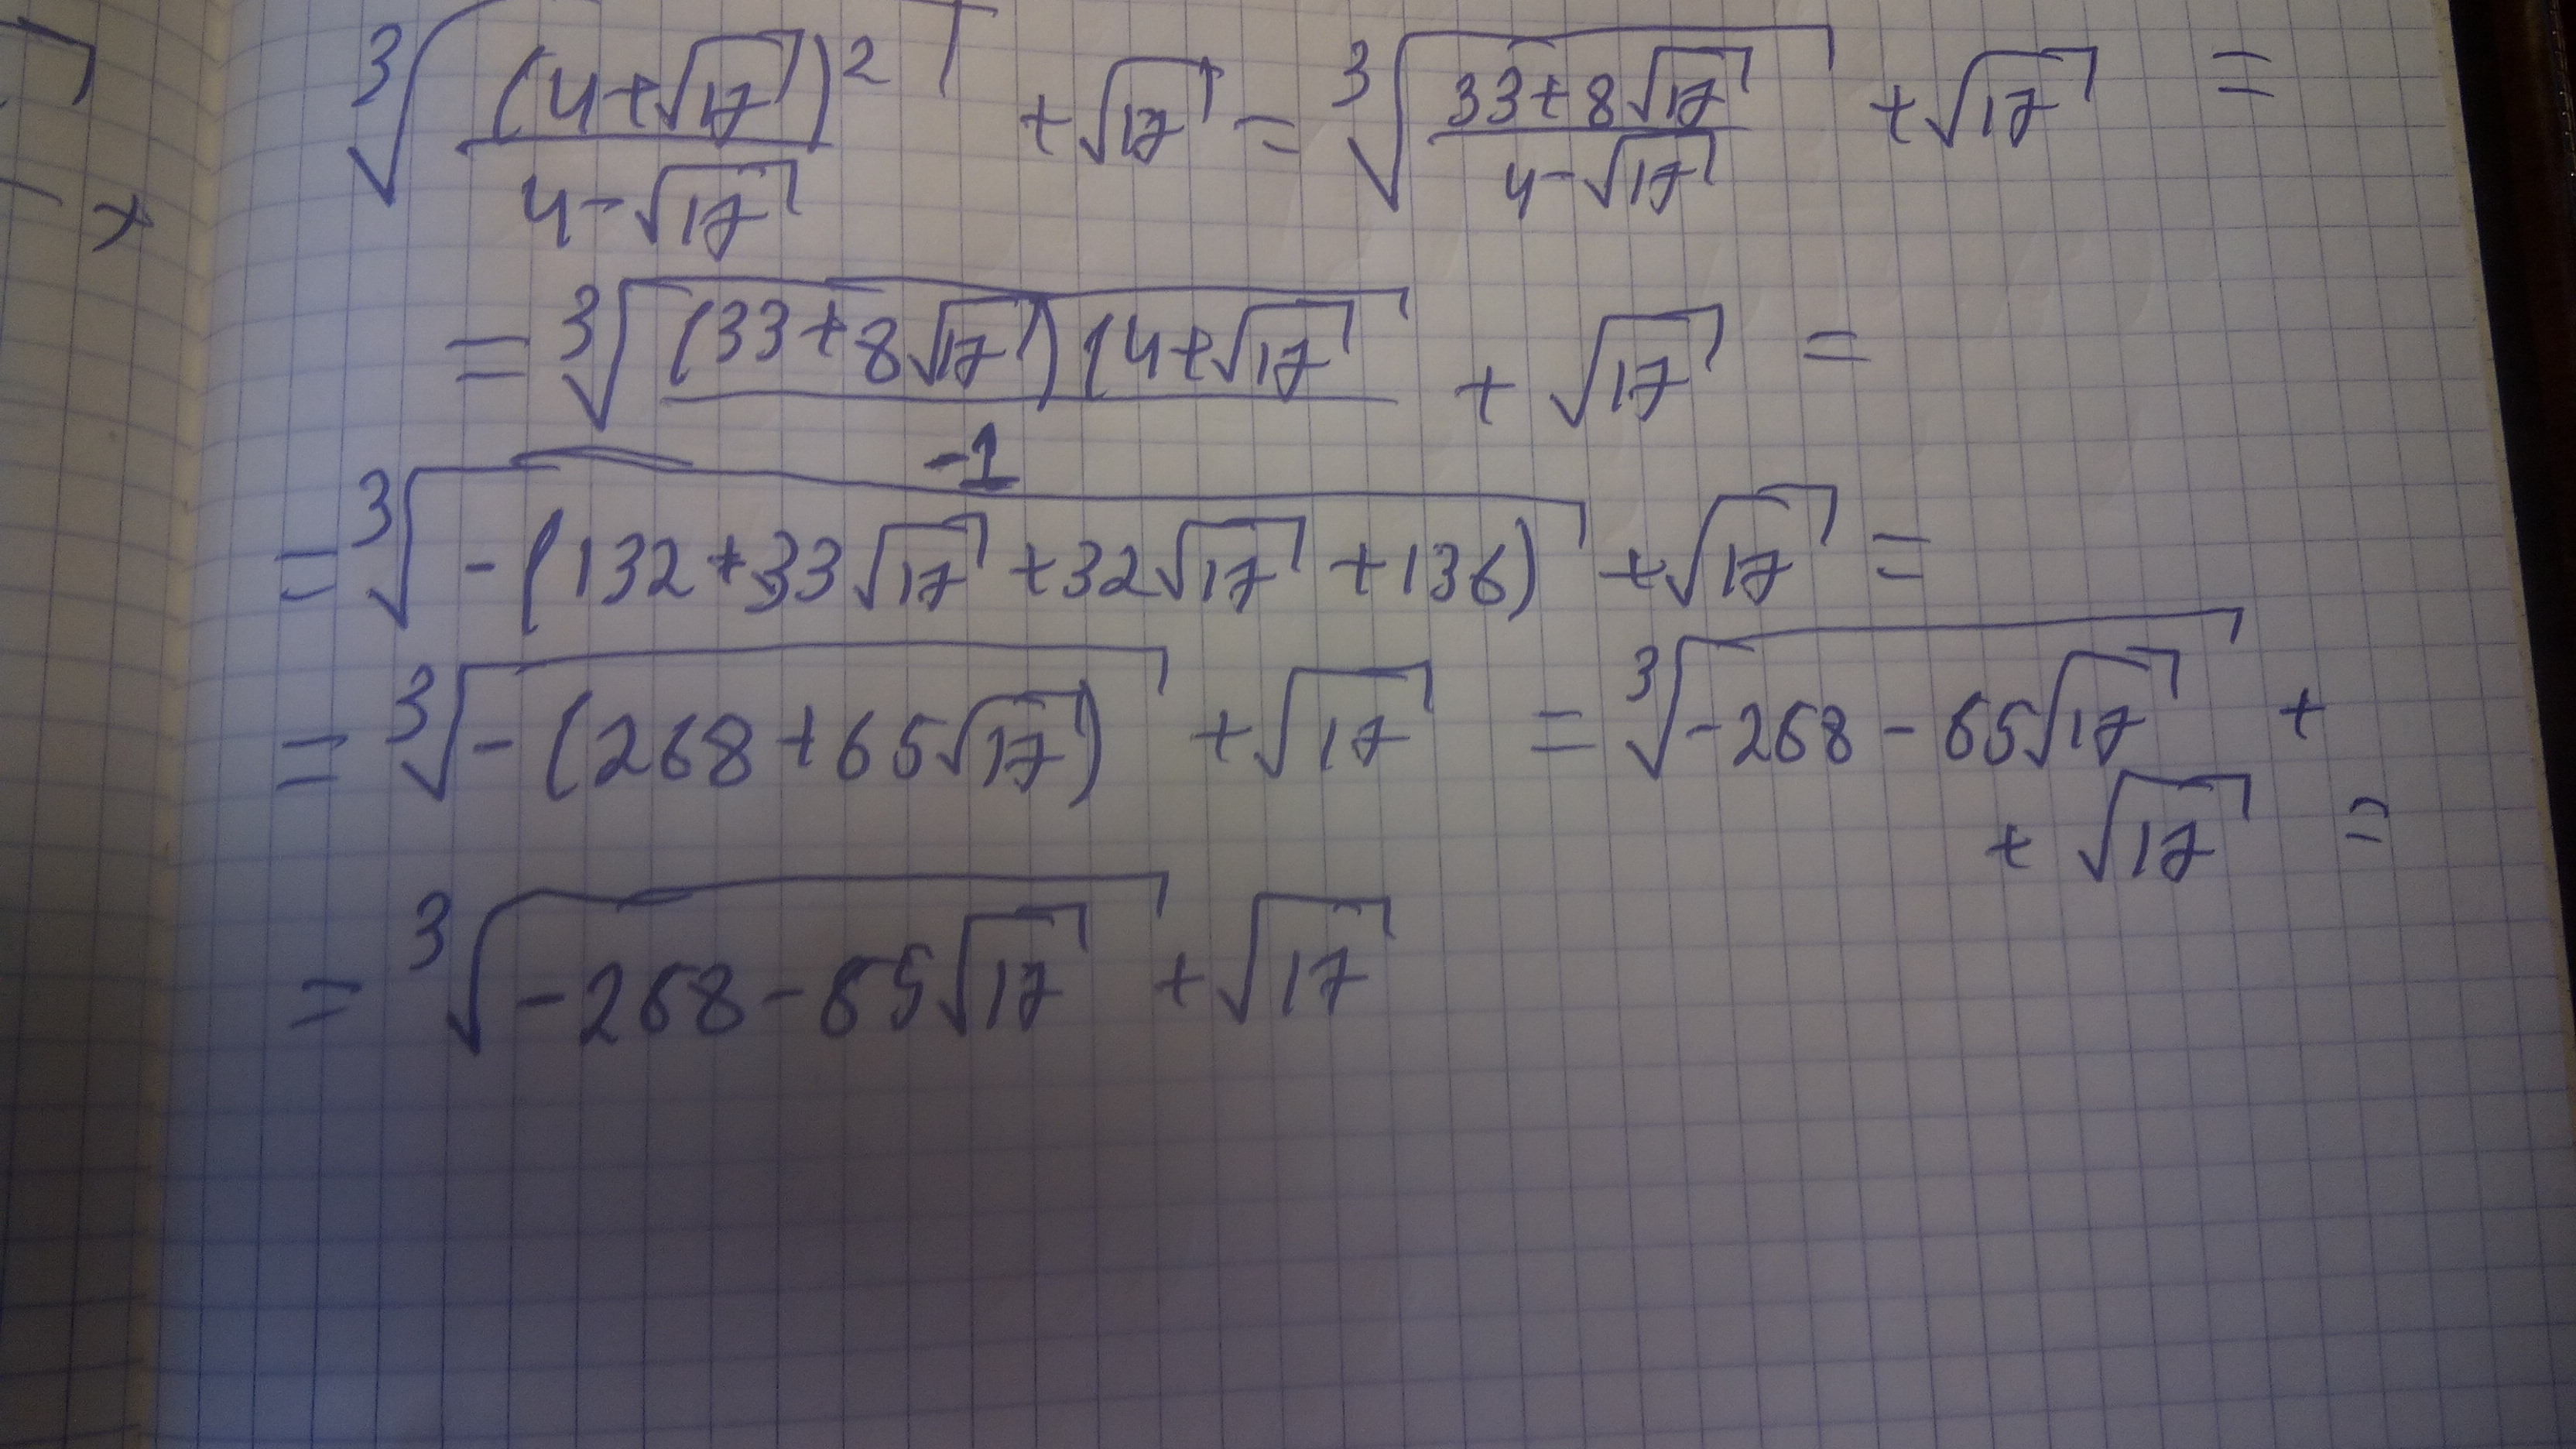 ∛((4+√17)²/(4-√17)) + √17 = ∛((33+8√17)/(4-√17)) + √17 =
= ∛((33+8√17)(4+√17/-1) + √17 =
= ∛(-(132+33√17+32√17+136)) + √17 =
= ∛(-(268+65√17)) + √17 = ∛(-268-65√17) +
+ √17 =
= ∛(-268-65√17) + √17